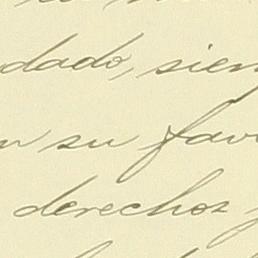 dado, siem
n su favo
derechos y